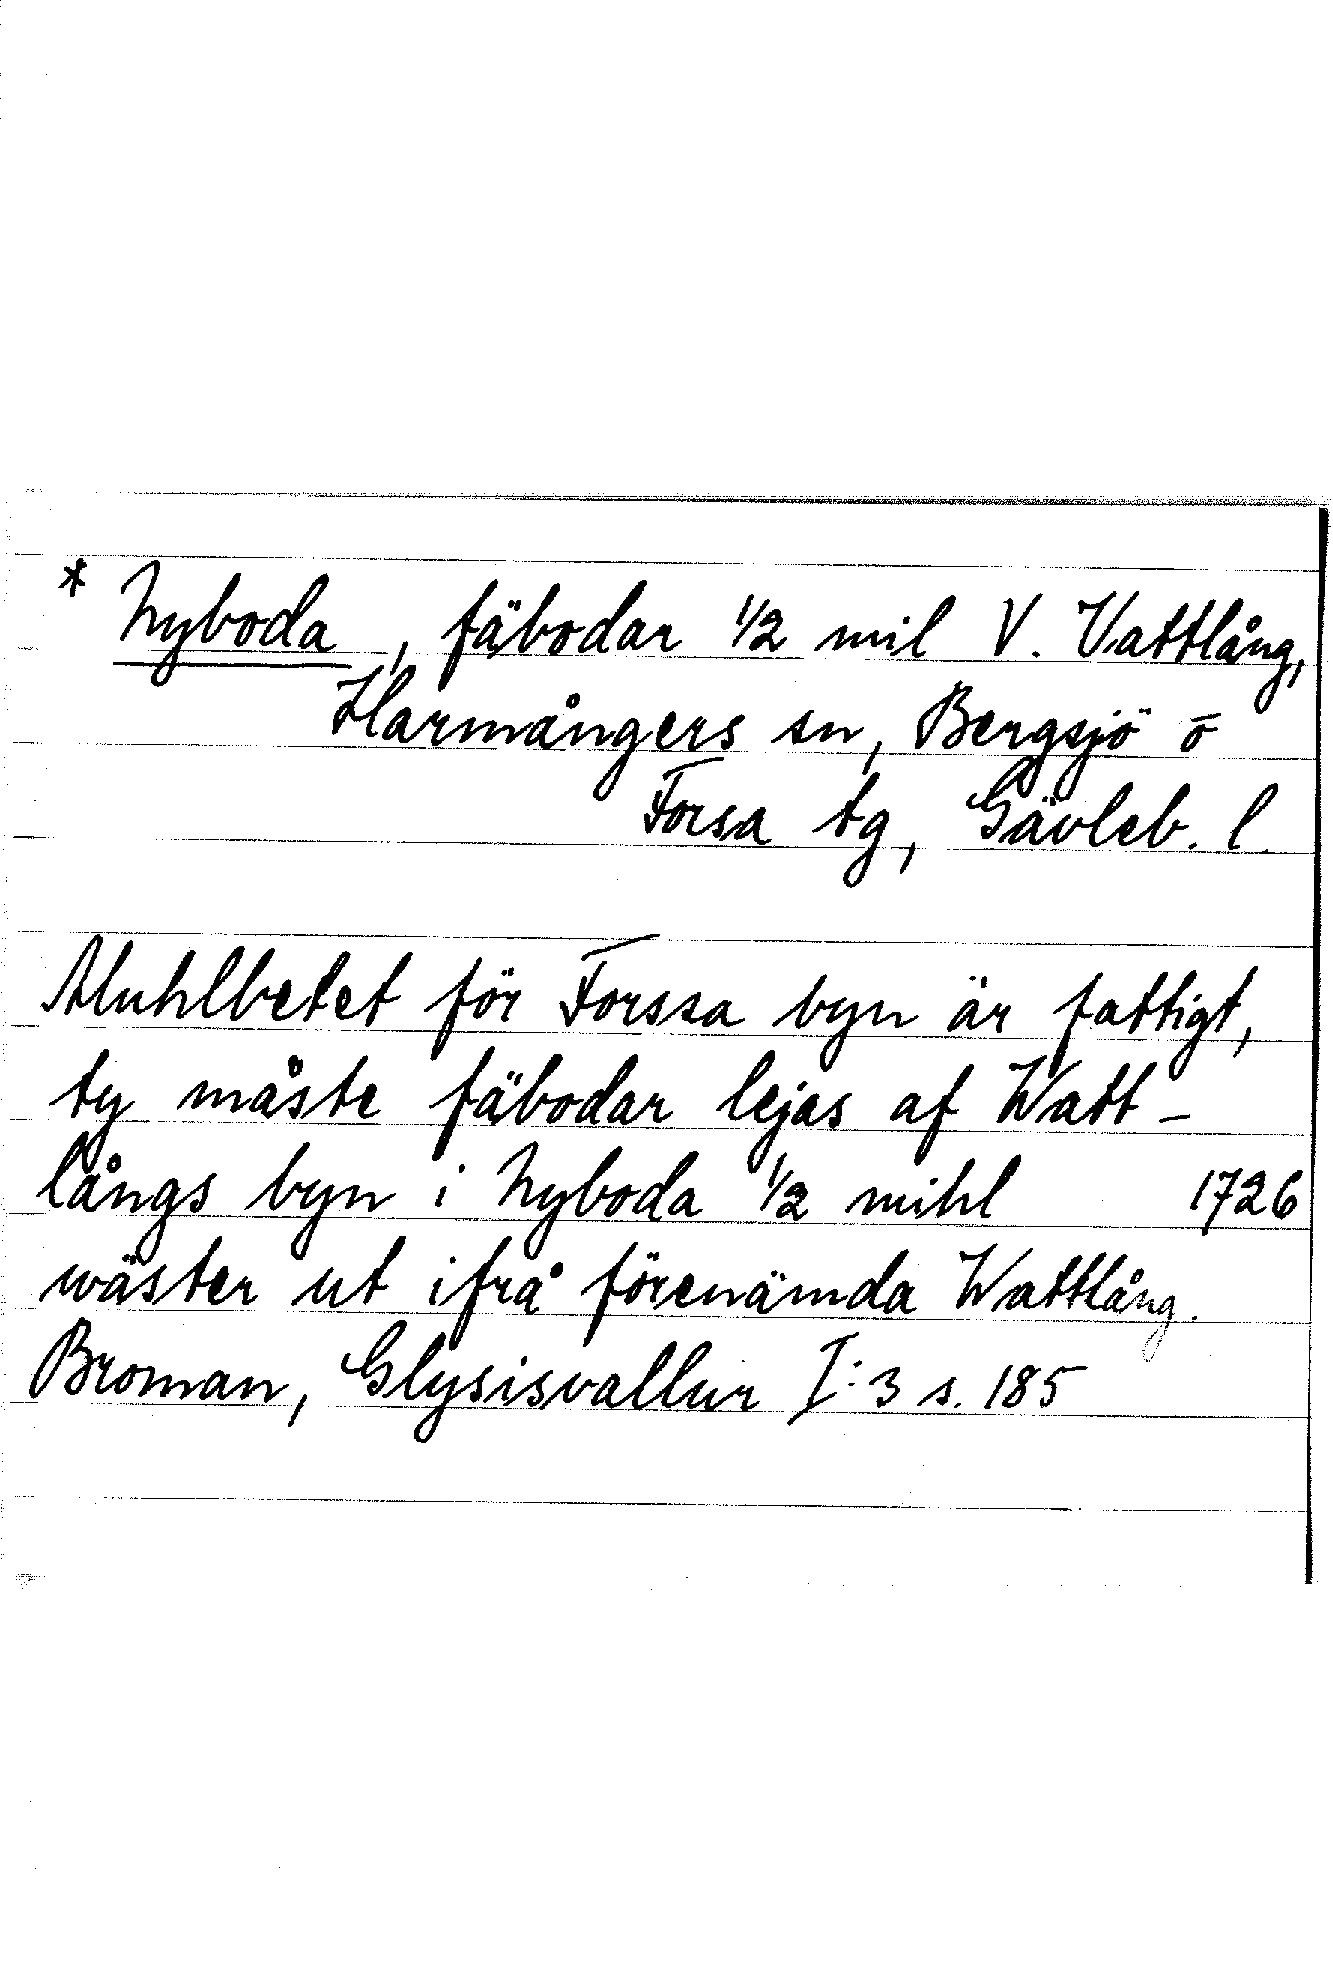 * Nyboda, fäbodar 1/2 mil V. Vattlång,
Harmångers sn, Bergsjö o
Forsa tg, Gävleb. l.
Muhlbetet för Forssa byn är fattigt,
ty måste fäbodar lejas af Watt-
långs byn i Nyboda 1/2 mihl 1726
wäster ut ifrå förenämda Wattlång.
Broman, Glysisvallur I:3 s. 185